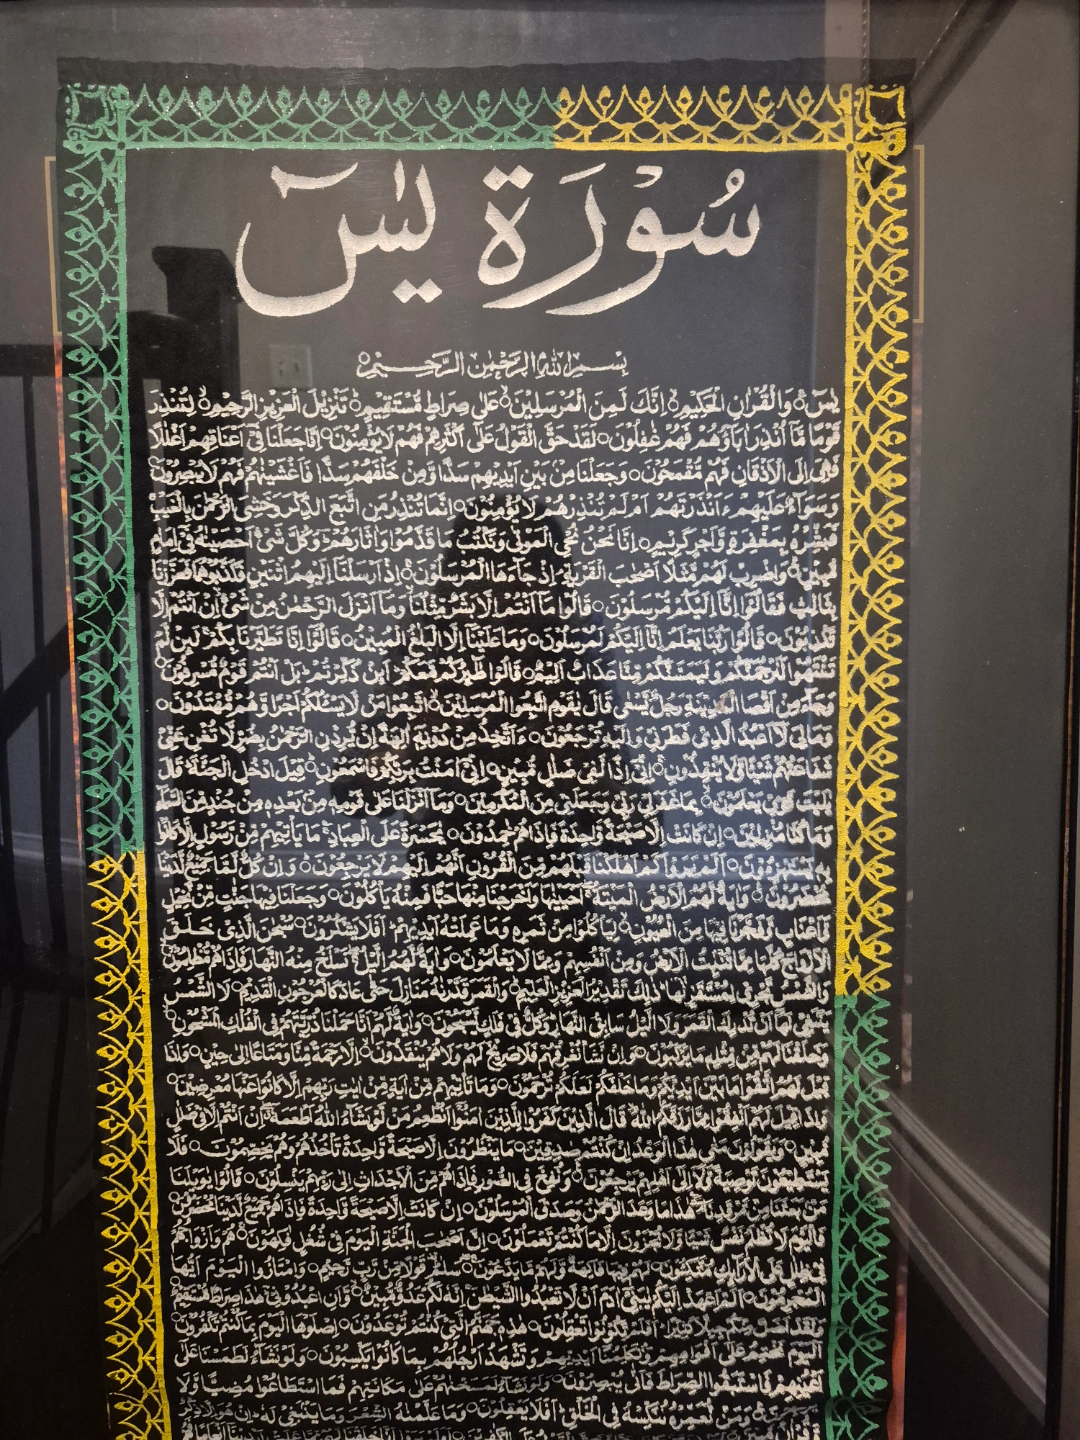 سُوْرَة يٰسٓ
بِسْمِ اللّٰهِ الرَّحْمٰنِ الرَّحِيْمِ
يٰسٓ ○ وَالْقُرْاٰنِ الْحَكِيْمِ ○ اِنَّكَ لَمِنَ الْمُرْسَلِيْنَ ○ عَلٰى صِرَاطٍ مُّسْتَقِيْمٍ ○ تَنْزِيْلَ الْعَزِيْزِ الرَّحِيْمِ ○ لِتُنْذِرَ
قَوْمًا مَّا اُنْذِرَ اٰبَاؤُهُمْ فَهُمْ غٰفِلُوْنَ ○ لَقَدْ حَقَّ الْقَوْلُ عَلٰى اَكْثَرِهِمْ فَهُمْ لَا يُؤْمِنُوْنَ ○ اِنَّا جَعَلْنَا فِيْ اَعْنَاقِهِمْ اَغْلٰلًا
فَهِيَ اِلَى الْاَذْقَانِ فَهُمْ مُّقْمَحُوْنَ ○ وَجَعَلْنَا مِنْ بَيْنِ اَيْدِيْهِمْ سَدًّا وَّمِنْ خَلْفِهِمْ سَدًّا فَاَغْشَيْنٰهُمْ فَهُمْ لَا يُبْصِرُوْنَ ○
وَسَوَاءٌ عَلَيْهِمْ ءَاَنْذَرْتَهُمْ اَمْ لَمْ تُنْذِرْهُمْ لَا يُؤْمِنُوْنَ ○ اِنَّمَا تُنْذِرُ مَنِ اتَّبَعَ الذِّكْرَ وَخَشِيَ الرَّحْمٰنَ بِالْغَيْبِ
فَبَشِّرْهُ بِمَغْفِرَةٍ وَّاَجْرٍ كَرِيْمٍ ○ اِنَّا نَحْنُ نُحْيِ الْمَوْتٰى وَنَكْتُبُ مَا قَدَّمُوْا وَاٰثَارَهُمْ وَكُلَّ شَيْءٍ اَحْصَيْنٰهُ فِيْ اِمَامٍ
مُّبِيْنٍ ○ وَاضْرِبْ لَهُمْ مَّثَلًا اَصْحٰبَ الْقَرْيَةِ اِذْ جَاءَهَا الْمُرْسَلُوْنَ ○ اِذْ اَرْسَلْنَا اِلَيْهِمُ اثْنَيْنِ فَكَذَّبُوْهُمَا فَعَزَّزْنَا
بِثَالِثٍ فَقَالُوْا اِنَّا اِلَيْكُمْ مُّرْسَلُوْنَ ○ قَالُوْا مَا اَنْتُمْ اِلَّا بَشَرٌ مِّثْلُنَا وَمَا اَنْزَلَ الرَّحْمٰنُ مِنْ شَيْءٍ اِنْ اَنْتُمْ اِلَّا
تَكْذِبُوْنَ ○ قَالُوْا رَبُّنَا يَعْلَمُ اِنَّا اِلَيْكُمْ لَمُرْسَلُوْنَ ○ وَمَا عَلَيْنَا اِلَّا الْبَلٰغُ الْمُبِيْنُ ○ قَالُوْا اِنَّا تَطَيَّرْنَا بِكُمْ لَئِنْ لَّمْ
تَنْتَهُوْا لَنَرْجُمَنَّكُمْ وَلَيَمَسَّنَّكُمْ مِّنَّا عَذَابٌ اَلِيْمٌ ○ قَالُوْا طَائِرُكُمْ مَّعَكُمْ اَئِنْ ذُكِّرْتُمْ بَلْ اَنْتُمْ قَوْمٌ مُّسْرِفُوْنَ ○
وَجَاءَ مِنْ اَقْصَا الْمَدِيْنَةِ رَجُلٌ يَّسْعٰى قَالَ يٰقَوْمِ اتَّبِعُوا الْمُرْسَلِيْنَ ○ اتَّبِعُوْا مَنْ لَّا يَسْئَلُكُمْ اَجْرًا وَّهُمْ مُّهْتَدُوْنَ ○
وَمَالِيَ لَا اَعْبُدُ الَّذِيْ فَطَرَنِيْ وَاِلَيْهِ تُرْجَعُوْنَ ○ ءَاَتَّخِذُ مِنْ دُوْنِهِ اٰلِهَةً اِنْ يُّرِدْنِ الرَّحْمٰنُ بِضُرٍّ لَّا تُغْنِ عَنِّيْ
شَفَاعَتُهُمْ شَيْئًا وَّلَا يُنْقِذُوْنِ ○ اِنِّيْ اِذًا لَّفِيْ ضَلٰلٍ مُّبِيْنٍ ○ اِنِّيْ اٰمَنْتُ بِرَبِّكُمْ فَاسْمَعُوْنِ ○ قِيْلَ ادْخُلِ الْجَنَّةَ قَالَ
يٰلَيْتَ قَوْمِيْ يَعْلَمُوْنَ ○ بِمَا غَفَرَ لِيْ رَبِّيْ وَجَعَلَنِيْ مِنَ الْمُكْرَمِيْنَ ○ وَمَا اَنْزَلْنَا عَلٰى قَوْمِهِ مِنْ بَعْدِهِ مِنْ جُنْدٍ مِّنَ السَّمَاءِ
وَمَا كُنَّا مُنْزِلِيْنَ ○ اِنْ كَانَتْ اِلَّا صَيْحَةً وَّاحِدَةً فَاِذَا هُمْ خٰمِدُوْنَ ○ يٰحَسْرَةً عَلَى الْعِبَادِ مَا يَأْتِيْهِمْ مِّنْ رَّسُوْلٍ اِلَّا كَانُوْا
بِهِ يَسْتَهْزِءُوْنَ ○ اَلَمْ يَرَوْا كَمْ اَهْلَكْنَا قَبْلَهُمْ مِّنَ الْقُرُوْنِ اَنَّهُمْ اِلَيْهِمْ لَا يَرْجِعُوْنَ ○ وَاِنْ كُلٌّ لَّمَّا جَمِيْعٌ لَّدَيْنَا
مُحْضَرُوْنَ ○ وَاٰيَةٌ لَّهُمُ الْاَرْضُ الْمَيْتَةُ اَحْيَيْنٰهَا وَاَخْرَجْنَا مِنْهَا حَبًّا فَمِنْهُ يَأْكُلُوْنَ ○ وَجَعَلْنَا فِيْهَا جَنّٰتٍ مِّنْ نَّخِيْلٍ
وَّاَعْنَابٍ وَّفَجَّرْنَا فِيْهَا مِنَ الْعُيُوْنِ ○ لِيَأْكُلُوْا مِنْ ثَمَرِهِ وَمَا عَمِلَتْهُ اَيْدِيْهِمْ اَفَلَا يَشْكُرُوْنَ ○ سُبْحٰنَ الَّذِيْ خَلَقَ
الْاَزْوَاجَ كُلَّهَا مِمَّا تُنْبِتُ الْاَرْضُ وَمِنْ اَنْفُسِهِمْ وَمِمَّا لَا يَعْلَمُوْنَ ○ وَاٰيَةٌ لَّهُمُ الَّيْلُ نَسْلَخُ مِنْهُ النَّهَارَ فَاِذَا هُمْ مُّظْلِمُوْنَ ○
وَالشَّمْسُ تَجْرِيْ لِمُسْتَقَرٍّ لَّهَا ذٰلِكَ تَقْدِيْرُ الْعَزِيْزِ الْعَلِيْمِ ○ وَالْقَمَرَ قَدَّرْنٰهُ مَنَازِلَ حَتّٰى عَادَ كَالْعُرْجُوْنِ الْقَدِيْمِ ○ لَا الشَّمْسُ
يَنْبَغِيْ لَهَا اَنْ تُدْرِكَ الْقَمَرَ وَلَا الَّيْلُ سَابِقُ النَّهَارِ وَكُلٌّ فِيْ فَلَكٍ يَّسْبَحُوْنَ ○ وَاٰيَةٌ لَّهُمْ اَنَّا حَمَلْنَا ذُرِّيَّتَهُمْ فِي الْفُلْكِ الْمَشْحُوْنِ ○
وَخَلَقْنَا لَهُمْ مِّنْ مِّثْلِهِ مَا يَرْكَبُوْنَ ○ وَاِنْ نَّشَأْ نُغْرِقْهُمْ فَلَا صَرِيْخَ لَهُمْ وَلَا هُمْ يُنْقَذُوْنَ ○ اِلَّا رَحْمَةً مِّنَّا وَمَتَاعًا اِلٰى حِيْنٍ ○ وَاِذَا
قِيْلَ لَهُمُ اتَّقُوْا مَا بَيْنَ اَيْدِيْكُمْ وَمَا خَلْفَكُمْ لَعَلَّكُمْ تُرْحَمُوْنَ ○ وَمَا تَأْتِيْهِمْ مِّنْ اٰيَةٍ مِّنْ اٰيٰتِ رَبِّهِمْ اِلَّا كَانُوْا عَنْهَا مُعْرِضِيْنَ ○
وَاِذَا قِيْلَ لَهُمْ اَنْفِقُوْا مِمَّا رَزَقَكُمُ اللّٰهُ قَالَ الَّذِيْنَ كَفَرُوْا لِلَّذِيْنَ اٰمَنُوْا اَنُطْعِمُ مَنْ لَّوْ يَشَاءُ اللّٰهُ اَطْعَمَهُ اِنْ اَنْتُمْ اِلَّا فِيْ ضَلٰلٍ
مُّبِيْنٍ ○ وَيَقُوْلُوْنَ مَتٰى هٰذَا الْوَعْدُ اِنْ كُنْتُمْ صٰدِقِيْنَ ○ مَا يَنْظُرُوْنَ اِلَّا صَيْحَةً وَّاحِدَةً تَأْخُذُهُمْ وَهُمْ يَخِصِّمُوْنَ ○ فَلَا
يَسْتَطِيْعُوْنَ تَوْصِيَةً وَّلَا اِلٰى اَهْلِهِمْ يَرْجِعُوْنَ ○ وَنُفِخَ فِي الصُّوْرِ فَاِذَا هُمْ مِّنَ الْاَجْدَاثِ اِلٰى رَبِّهِمْ يَنْسِلُوْنَ ○ قَالُوْا يٰوَيْلَنَا
مَنْ بَعَثَنَا مِنْ مَّرْقَدِنَا هٰذَا مَا وَعَدَ الرَّحْمٰنُ وَصَدَقَ الْمُرْسَلُوْنَ ○ اِنْ كَانَتْ اِلَّا صَيْحَةً وَّاحِدَةً فَاِذَا هُمْ جَمِيْعٌ لَّدَيْنَا مُحْضَرُوْنَ ○
فَالْيَوْمَ لَا تُظْلَمُ نَفْسٌ شَيْئًا وَّلَا تُجْزَوْنَ اِلَّا مَا كُنْتُمْ تَعْمَلُوْنَ ○ اِنَّ اَصْحٰبَ الْجَنَّةِ الْيَوْمَ فِيْ شُغُلٍ فٰكِهُوْنَ ○ هُمْ وَاَزْوَاجُهُمْ
فِيْ ظِلٰلٍ عَلَى الْاَرَائِكِ مُتَّكِئُوْنَ ○ لَهُمْ فِيْهَا فَاكِهَةٌ وَّلَهُمْ مَّا يَدَّعُوْنَ ○ سَلٰمٌ قَوْلًا مِّنْ رَّبٍّ رَّحِيْمٍ ○ وَامْتَازُوا الْيَوْمَ اَيُّهَا
الْمُجْرِمُوْنَ ○ اَلَمْ اَعْهَدْ اِلَيْكُمْ يٰبَنِيْ اٰدَمَ اَنْ لَّا تَعْبُدُوا الشَّيْطٰنَ اِنَّهُ لَكُمْ عَدُوٌّ مُّبِيْنٌ ○ وَاَنِ اعْبُدُوْنِيْ هٰذَا صِرَاطٌ مُّسْتَقِيْمٌ ○
وَلَقَدْ اَضَلَّ مِنْكُمْ جِبِلًّا كَثِيْرًا اَفَلَمْ تَكُوْنُوْا تَعْقِلُوْنَ ○ هٰذِهِ جَهَنَّمُ الَّتِيْ كُنْتُمْ تُوْعَدُوْنَ ○ اِصْلَوْهَا الْيَوْمَ بِمَا كُنْتُمْ تَكْفُرُوْنَ ○
اَلْيَوْمَ نَخْتِمُ عَلٰى اَفْوَاهِهِمْ وَتُكَلِّمُنَا اَيْدِيْهِمْ وَتَشْهَدُ اَرْجُلُهُمْ بِمَا كَانُوْا يَكْسِبُوْنَ ○ وَلَوْ نَشَاءُ لَطَمَسْنَا عَلٰى
اَعْيُنِهِمْ فَاسْتَبَقُوا الصِّرَاطَ فَاَنّٰى يُبْصِرُوْنَ ○ وَلَوْ نَشَاءُ لَمَسَخْنٰهُمْ عَلٰى مَكَانَتِهِمْ فَمَا اسْتَطَاعُوْا مُضِيًّا وَّلَا
يَرْجِعُوْنَ ○ وَمَنْ نُّعَمِّرْهُ نُنَكِّسْهُ فِي الْخَلْقِ اَفَلَا يَعْقِلُوْنَ ○ وَمَا عَلَّمْنٰهُ الشِّعْرَ وَمَا يَنْبَغِيْ لَهُ اِنْ هُوَ اِلَّا ذِكْرٌ